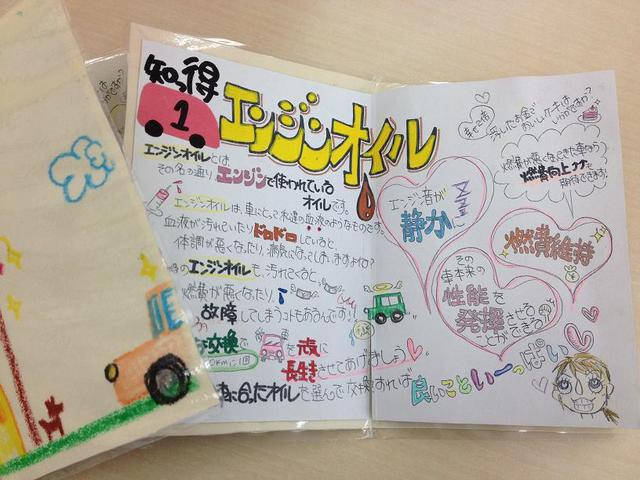 知っ得
1
エンジンオイル
エンジンオイルとは
その名の通り、エンジンで使われている
オイルです。
エンジンオイルは、車にとって水道の血液のようなものです。
血液が汚れていたりドロドロしていると、
体調が悪くなったり、病気になってしまいますよね?
エンジンオイルも、汚れてくると、
燃費が悪くなったり、
故障してしまうコトもあるんです!!
交換で
長生きさせてあげましょう
合ったオイルを選んで交換すれば
良いこといーっぱい
エンジン音が
静かに
燃費維持
その
車本来の
性能を
発揮させる
ことができる
浮いたお金で
おいしいケーキは
いかがですか?
燃費が悪くなってきた車なら
燃費向上も
期待できます!